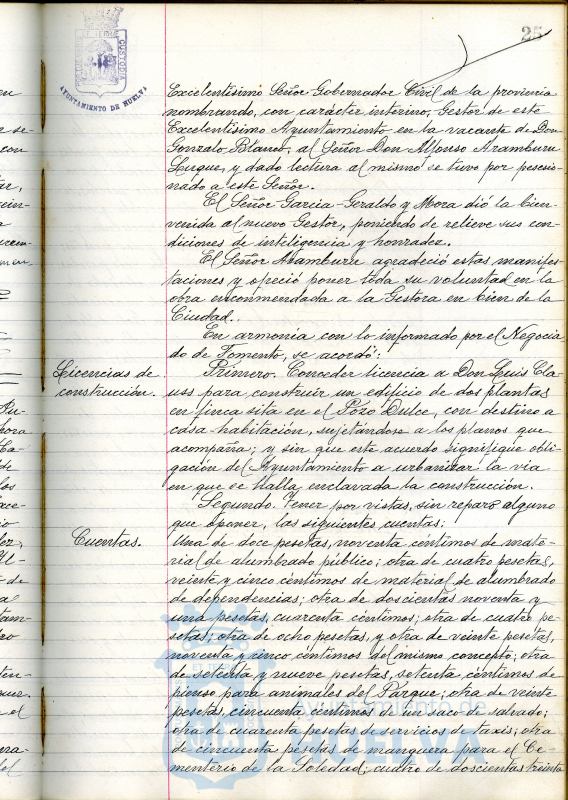 25
AYUNTAMIENTO DE HUELVA
Excelentísimo Señor Gobernador Civil de la provincia
nombrando, con carácter interino, Gestor de este
Excelentísimo Ayuntamiento en la vacante de Don
Gonzalo Blanco, al Señor Don Alfonso Aramburu
Luque, y dado lectura al mismo se tuvo por posesio-
nado a este Señor.
El Señor Garcia-Geraldo y Mora dió la bien-
venida al nuevo Gestor, poniendo de relieve sus con-
diciones de inteligencia y honradez.
El Señor Aramburu agradeció estas manifes-
taciones y ofreció poner toda su voluntad en la
obra encomendada a la Gestora en bien de la
Ciudad.
En armonía con lo informado por el Negocia
do de Fomento, se acordó:
Licencias de
construcción.
Primero. Conceder licencia a Don Luis Cla
uss para construir un edificio de dos plantas
en finca sita en el Pozo Dulce, con destino a
casa-habitación, sujetándose a los planos que
acompaña; y sin que este acuerdo signifique obli-
gación del Ayuntamiento a urbanizar la via
en que se halla enclavada la construcción.
Segundo. Tener por vistas, sin reparo alguno
que oponer, las siguientes cuentas:
Cuentas.
Una de doce pesetas, noventa céntimos de mate-
rial de alumbrado público; otra de cuatro pesetas,
veinte y cinco céntimos de material de alumbrado
de dependencias; otra de doscientas noventa y
una pesetas, cuarenta céntimos; otra de cuatro pe-
setas; otra de ocho pesetas, y otra de veinte pesetas,
noventa y cinco céntimos del mismo concepto; otra
de setenta y nueve pesetas, setenta céntimos de
pienso para animales del Parque; otra de veinte
pesetas, cincuenta céntimos de un saco de salvado;
otra de cuarenta pesetas de servicios de taxis; otra
de cincuenta pesetas de manguera para el Ce-
menterio de la Soledad; cuatro de doscientas treinta
Ayuntamiento de
HUELVA